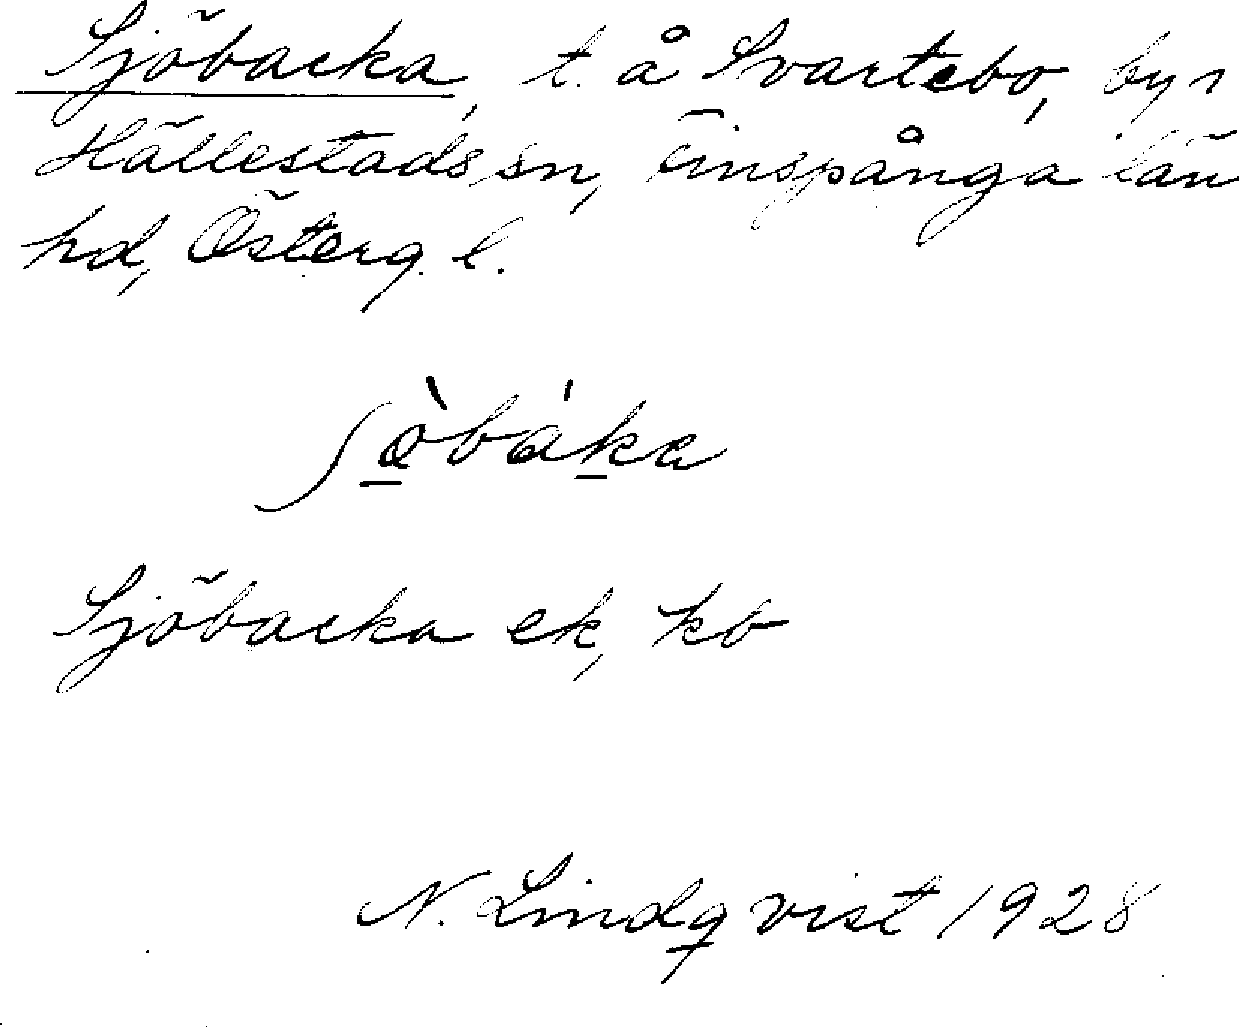 Sjöbacka, t. å Svartebo, by i
Hällestads sn, Finspånga län
hd, Österg. l.
ʃöbàka
Sjöbacka ek, kb
N. Lindqvist 1928